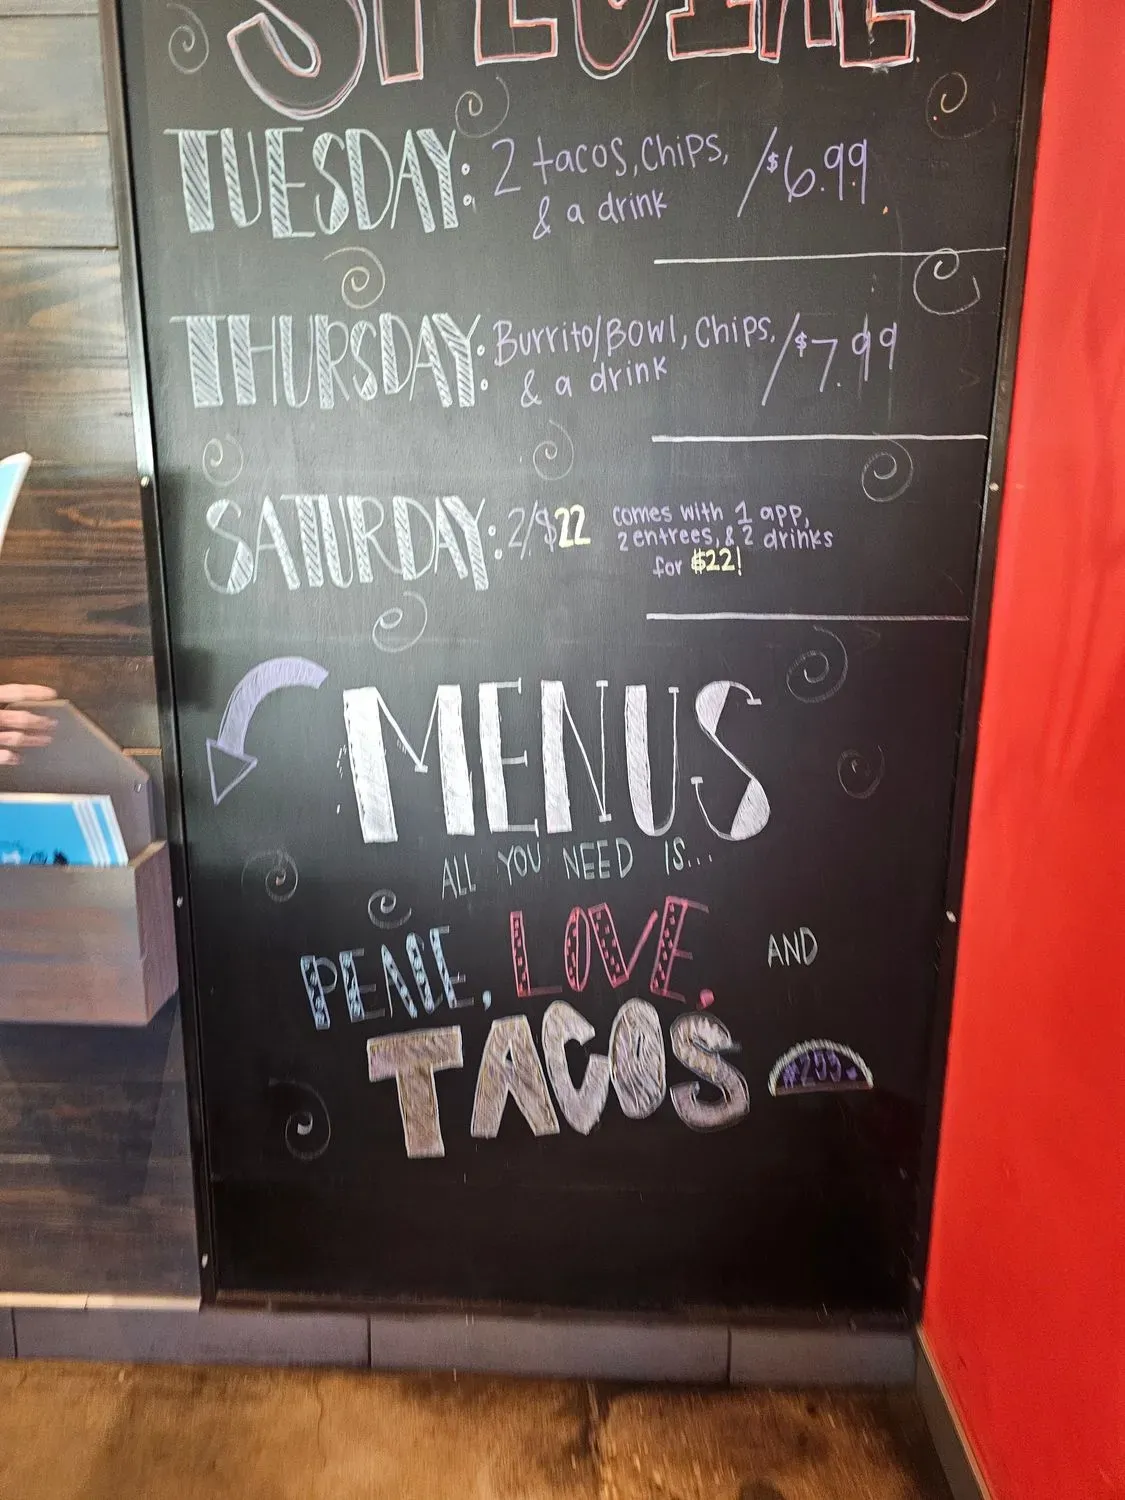 SPECIALS
TUESDAY: 2 tacos, chips, /$6.99
& a drink
THURSDAY: Burrito/Bowl, Chips, /$7.99
& a drink
SATURDAY: 2/$22 comes with 1 app,
2 entrees, & 2 drinks
for $22!
MENUS
ALL YOU NEED IS...
PEACE, LOVE, AND
TACOS
#255